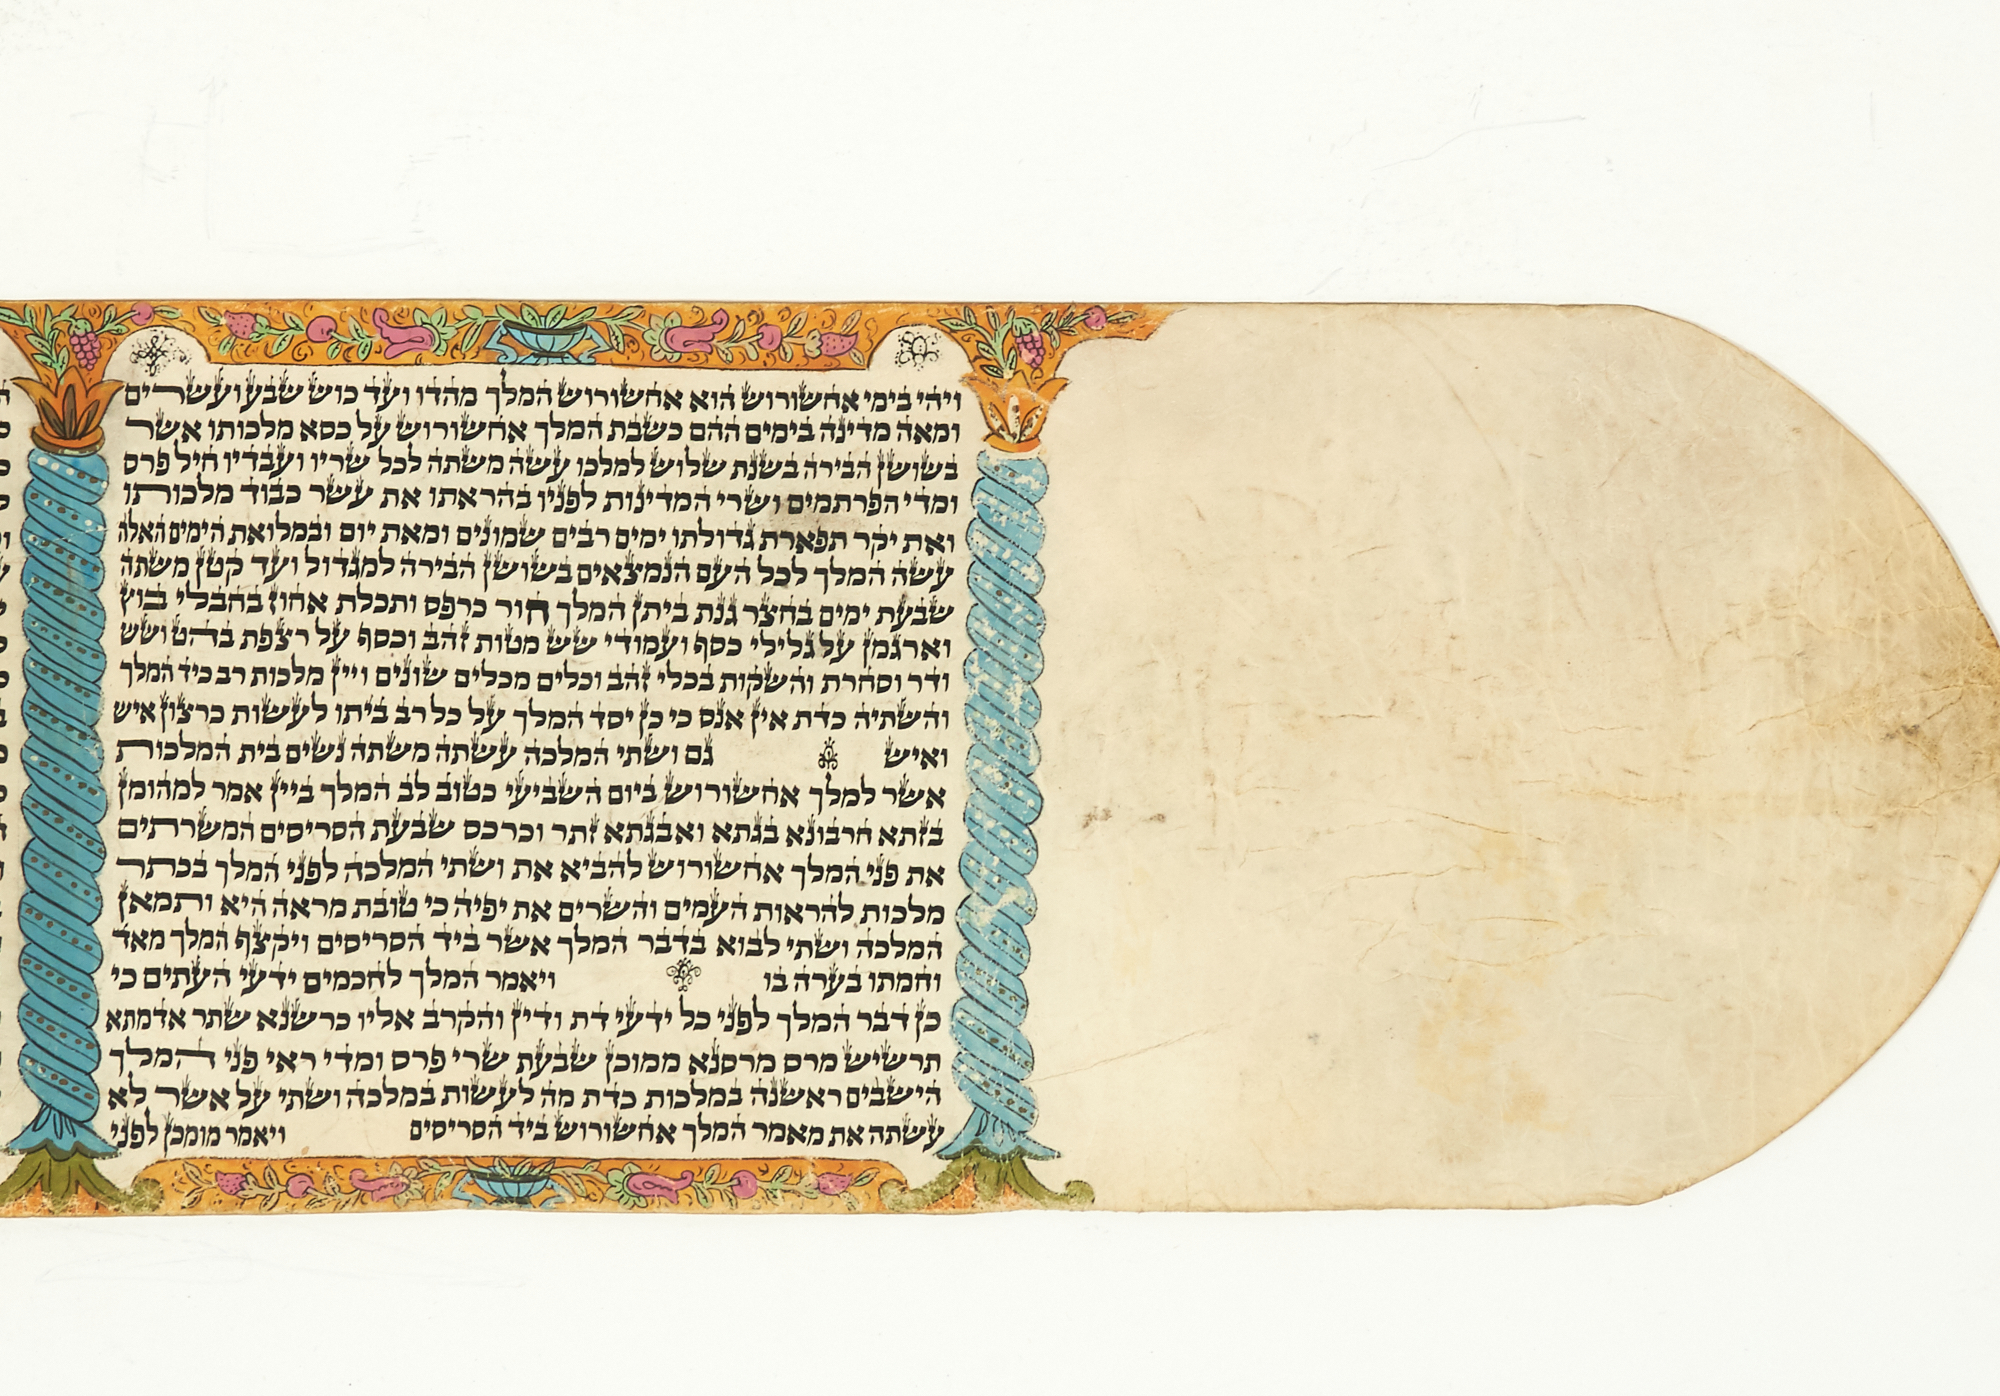 ויהי בימי אחשורוש הוא אחשורוש המלך מהדו ועד כוש שבע ועשרים
ומאה מדינה בימים ההם כשבת המלך אחשורוש על כסא מלכותו אשר
בשושן הבירה בשנת שלוש למלכו עשה משתה לכל שריו ועבדיו חיל פרס
ומדי הפרתמים ושרי המדינות לפניו בהראתו את עשר כבוד מלכותו
ואת יקר תפארת גדולתו ימים רבים שמונים ומאת יום ובמלואת הימים האלה
עשה המלך לכל העם הנמצאים בשושן הבירה למגדול ועד קטן משתה
שבעת ימים בחצר גנת ביתן המלך חור כרפס ותכלת אחוז בחבלי בוץ
וארגמן על גלילי כסף ועמודי שש מטות זהב וכסף על רצפת בהט ושש
ודר וסחרת והשקות בכלי זהב וכלים מכלים שונים ויין מלכות רב כיד המלך
והשתיה כדת אין אנס כי כן יסד המלך על כל רב ביתו לעשות כרצון איש
ואיש גם ושתי המלכה עשתה משתה נשים בית המלכות
אשר למלך אחשורוש ביום השביעי כטוב לב המלך ביין אמר למהומן
בזתא חרבונא בגתא ואבגתא זתר וכרכס שבעת הסריסים המשרתים
את פני המלך אחשורוש להביא את ושתי המלכה לפני המלך בכתר
מלכות להראות העמים והשרים את יפיה כי טובת מראה היא ותמאן
המלכה ושתי לבוא בדבר המלך אשר ביד הסריסים ויקצף המלך מאד
וחמתו בערה בו ויאמר המלך לחכמים ידעי העתים כי
כן דבר המלך לפני כל ידעי דת ודין והקרב אליו כרשנא שתר אדמתא
תרשיש מרס מרסנא ממוכן שבעת שרי פרס ומדי ראי פני המלך
הישבים ראשנה במלכות כדת מה לעשות במלכה ושתי על אשר לא
עשתה את מאמר המלך אחשורוש ביד הסריסים ויאמר מומכן לפני